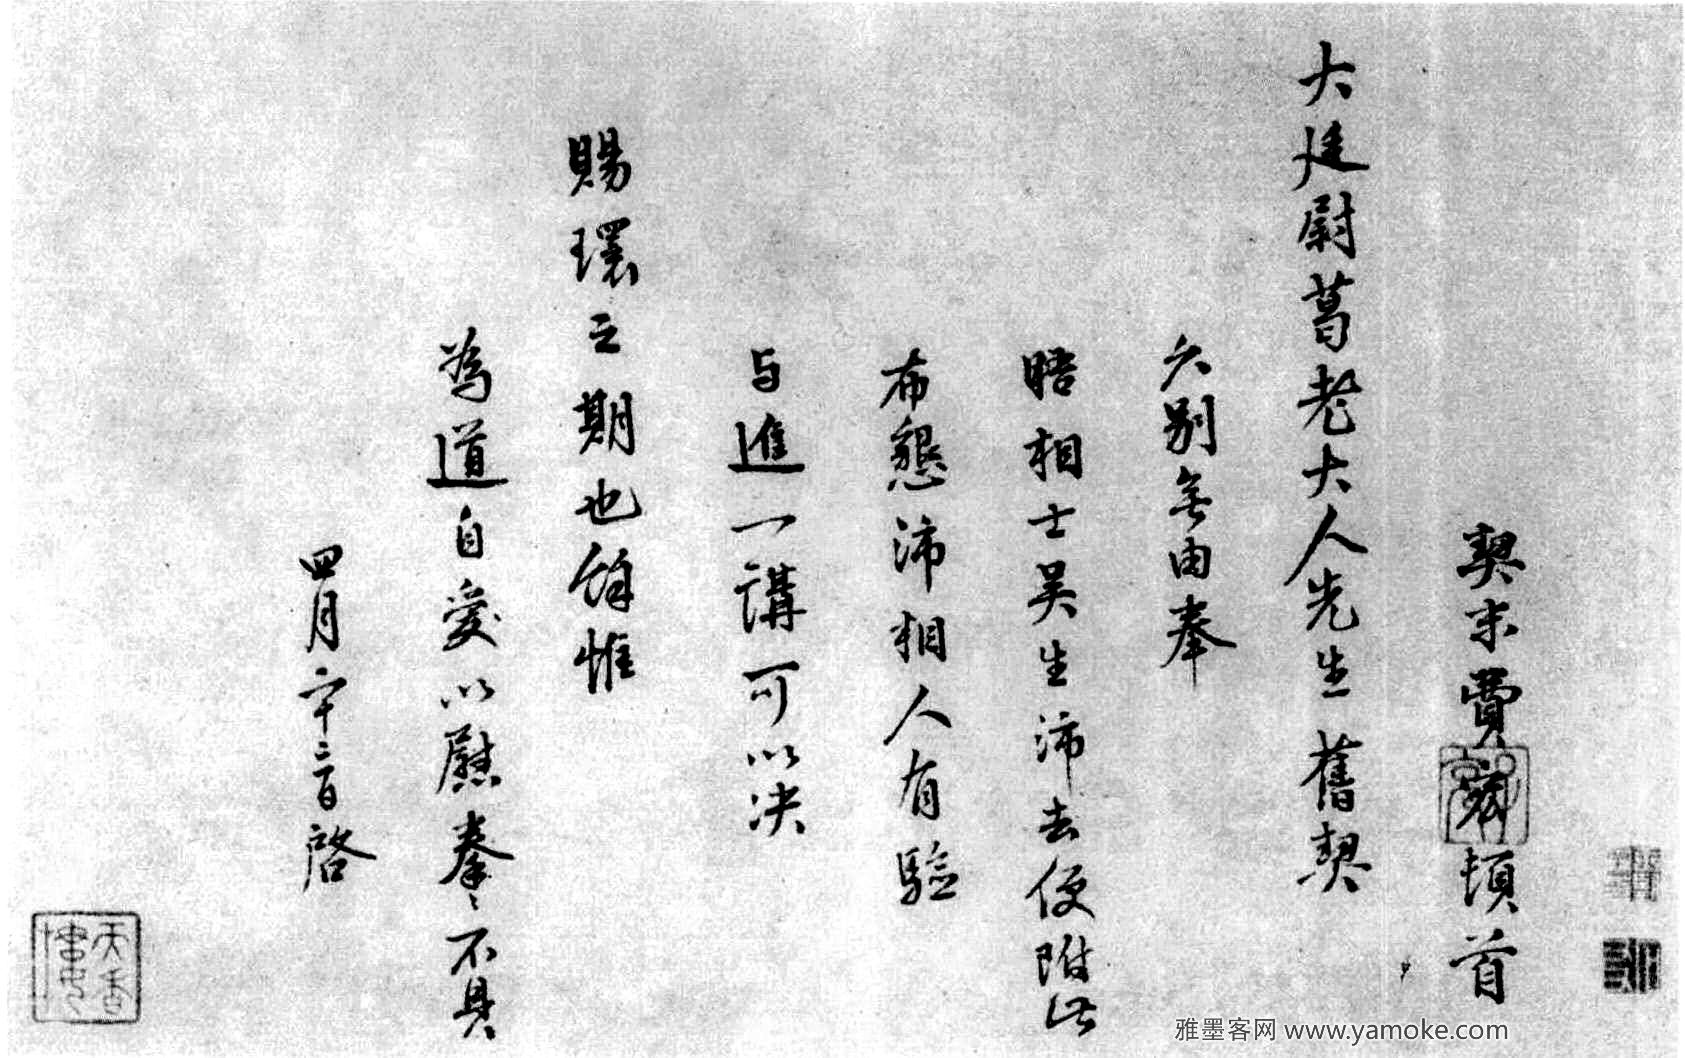 契末費寀頓首
大廷尉葛老大人先生舊契
久別無由奉
晤相士吴生沛去便附此
布懇沛相人有驗
与進一講可以决
賜環之期也餘惟
為道自愛以慰拳〻不具
四月廿三日啓
天香書屋
雅墨客网 www.yamoke.com